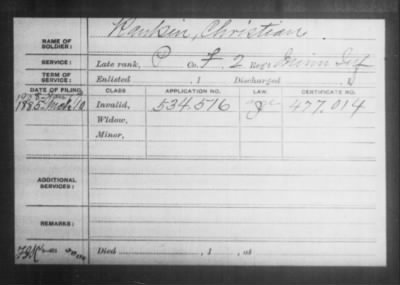 NAME OF SOLDIER: Rankin, Christian
SERVICE: Late rank, P Co. F, 2 Reg't Minn Inf
TERM OF SERVICE: Enlisted , 1 Discharged , 1
DATE OF FILING. CLASS APPLICATION NO. LAW. CERTIFICATE NO.
1885, Mch 10 Invalid, 534,516 477,014
Widow,
Minor,
ADDITIONAL SERVICES:
REMARKS:
Died , 1 , at